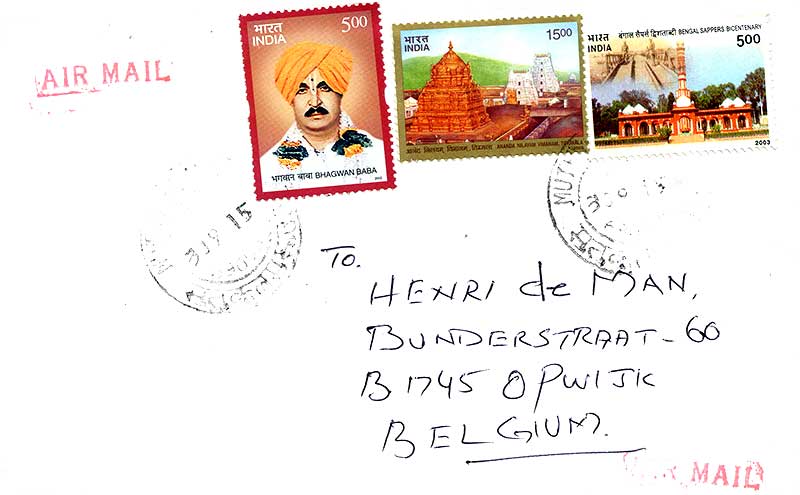 AIR MAIL
भारत 5.00
INDIA
भगवान बाबा BHAGWAN BABA
भारत 15.00
INDIA
ANANDA NILAYAM VIMANAM, TIRUMALA
बंगाल सैपर्स द्विशताब्दी BENGAL SAPPERS BICENTENARY
भारत 5.00
INDIA
2003
3 9 15
MUT
3 9 15
To.
HENRI de MAN,
BUNDERSTRAAT-60
B 1745 OPWIJK
BELGIUM.
AIR MAIL